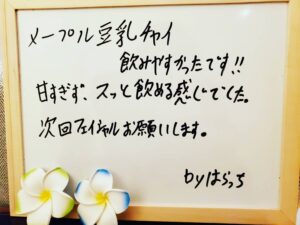 メープル豆乳チャイ
飲みやすかったです!!
甘すぎず、スッと飲める感じでした。
次回フェイシャルお願いします。
byはらっち